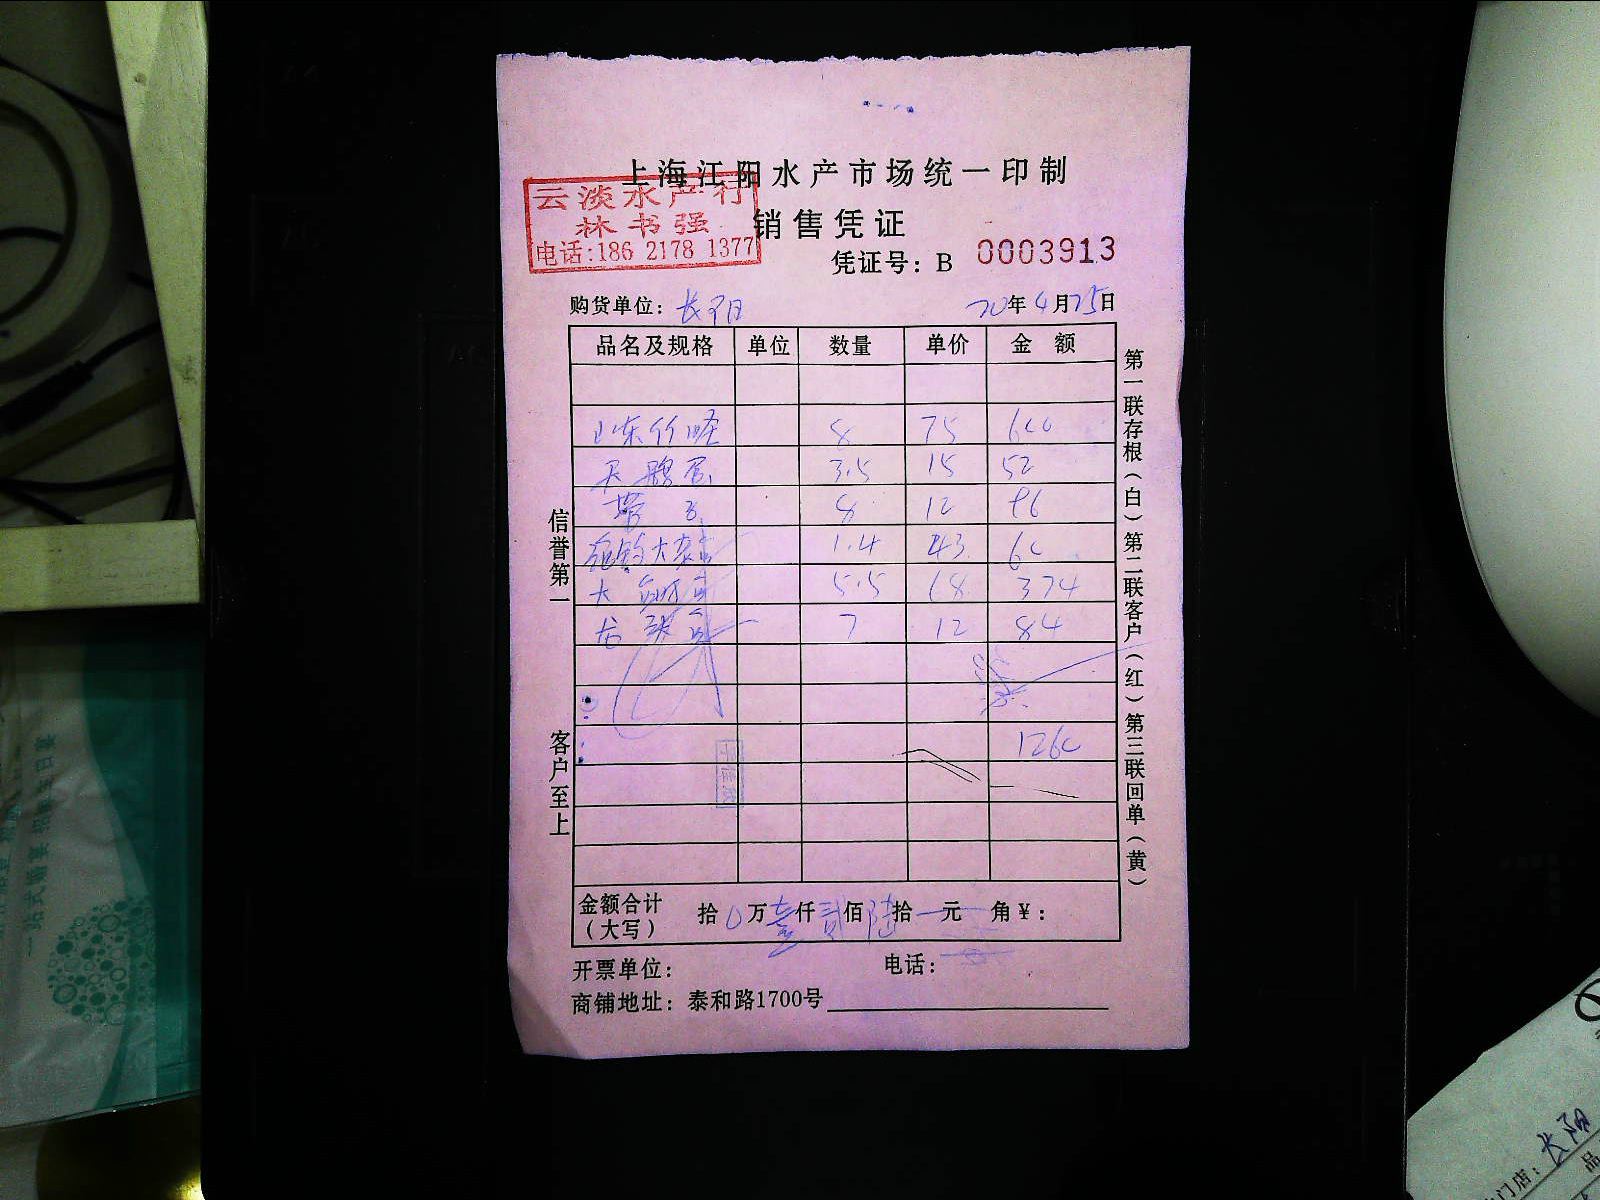 上海江阳水产市场统一印制
云淡水产行
林书强
电话:186 2178 1377
销售凭证
凭证号: B 0003913
购货单位: 长阳 20年4月25日
品名及规格 单位 数量 单价 金额
山东竹蛏 8 75 600
天鹅蛋 3.5 15 52
带子 8 12 96
1.4 43 60
大 5.5 68 374
龙头鱼 7 12 84
1260
金额合计(大写) 拾0万壹仟贰佰陆拾一元 角¥:
开票单位: 电话:
商铺地址: 泰和路1700号
信誉第一
客户至上
第一联存根(白)第二联客户(红)第三联回单(黄)
一站式婚宴
长阳
门店:
品